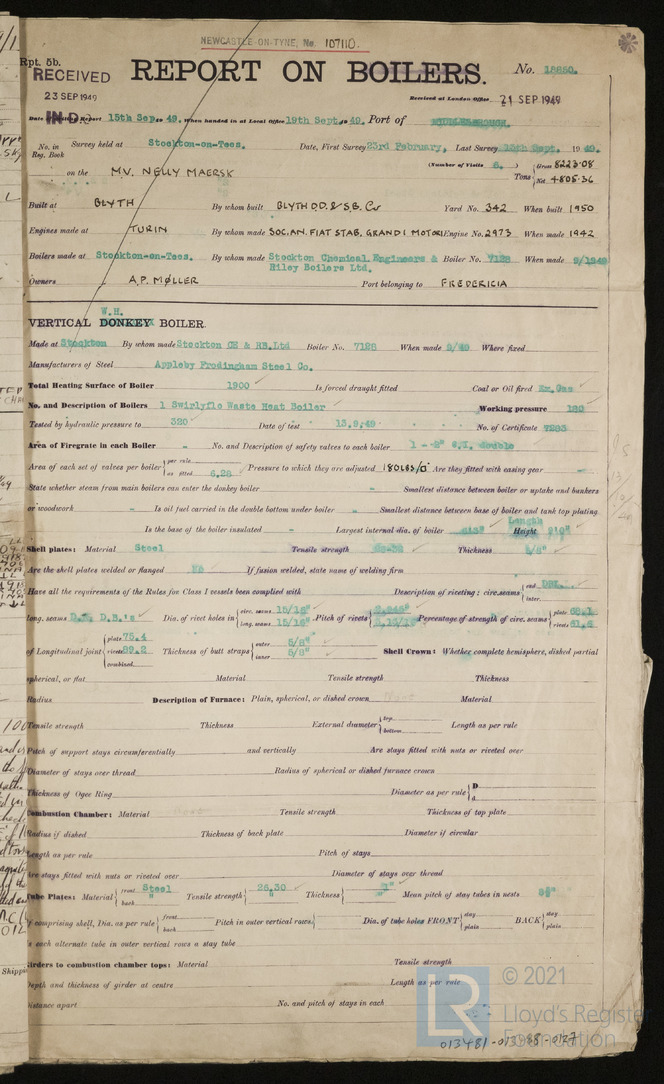 NEWCASTLE-ON-TYNE, No. 107110.
Rpt. 5b.
RECEIVED
23 SEP 1949
IN D.O.
REPORT ON BOILERS.
No. 18850.
Received at London Office 21 SEP 1949
Date Report 15th Sep. 49. When handed in at Local Office 19th Sept. 49. Port of MIDDLESBROUGH.
No. in Reg. Book Survey held at Stockton-on-Tees. Date, First Survey 23rd February, Last Survey Sept. 1949.
(Number of Visits 6. )
on the MV. NELLY MAERSK Tons Gross 8223.08 Net 4805.36
Built at BLYTH By whom built BLYTH D.D. & S.B. Co Yard No. 342 When built 1950
Engines made at TURIN By whom made SOC. AN. FIAT STAB. GRANDI MOTORI Engine No. 2973 When made 1942
Boilers made at Stockton-on-Tees. By whom made Stockton Chemical Engineers & Riley Boilers Ltd. Boiler No. 7128 When made 9/1949
Owners A.P. MØLLER Port belonging to FREDERICIA
W.H.
VERTICAL DONKEY BOILER.
Made at Stockton By whom made Stockton CE & RB.Ltd Boiler No. 7128 When made 9/49 Where fixed
Manufacturers of Steel Appleby Frodingham Steel Co.
Total Heating Surface of Boiler 1900 Is forced draught fitted Coal or Oil fired Ex.Gas
No. and Description of Boilers 1 Swirlyflo Waste Heat Boiler Working pressure 180
Tested by hydraulic pressure to 320 Date of test 13.9.49 No. of Certificate 7283
Area of Firegrate in each Boiler - No. and Description of safety valves to each boiler 1 - 2" double
Area of each set of valves per boiler per rule as fitted 6.28 Pressure to which they are adjusted 180 LBS/□" Are they fitted with easing gear
State whether steam from main boilers can enter the donkey boiler - Smallest distance between boiler or uptake and bunkers
or woodwork - Is oil fuel carried in the double bottom under boiler - Smallest distance between base of boiler and tank top plating
Is the base of the boiler insulated - Largest internal dia. of boiler Length Height 9'0"
Shell plates: Material Steel Tensile strength Thickness 5/8"
Are the shell plates welded or flanged No If fusion welded, state name of welding firm
Have all the requirements of the Rules for Class I vessels been complied with Description of riveting: circ. seams end inter.
long. seams D.R. D.B.'s Dia. of rivet holes in circ. seams 15/16" long. seams 15/16" Pitch of rivets Percentage of strength of circ. seams plate rivets 61.6
of Longitudinal joint plate 75.4 rivets combined Thickness of butt straps outer 5/8" inner 5/8" Shell Crown: Whether complete hemisphere, dished partial
spherical, or flat Material Tensile strength Thickness
Radius Description of Furnace: Plain, spherical, or dished crown None Material
Tensile strength Thickness External diameter top bottom Length as per rule
Pitch of support stays circumferentially and vertically Are stays fitted with nuts or riveted over
Diameter of stays over thread Radius of spherical or dished furnace crown
Thickness of Ogee Ring Diameter as per rule D d
Combustion Chamber: Material Tensile strength Thickness of top plate
Radius if dished Thickness of back plate Diameter if circular
Length as per rule Pitch of stays
Are stays fitted with nuts or riveted over Diameter of stays over thread
Tube Plates: Material front Steel back " Tensile strength 26.30 " Thickness Mean pitch of stay tubes in nests
If comprising shell, Dia. as per rule front back Pitch in outer vertical rows Dia. of tube holes FRONT stay plain BACK stay plain
Is each alternate tube in outer vertical rows a stay tube
Girders to combustion chamber tops: Material Tensile strength
Depth and thickness of girder at centre Length as per rule
Distance apart No. and pitch of stays in each
© 2021
Lloyd's Register
Foundation
013481-013488-0127